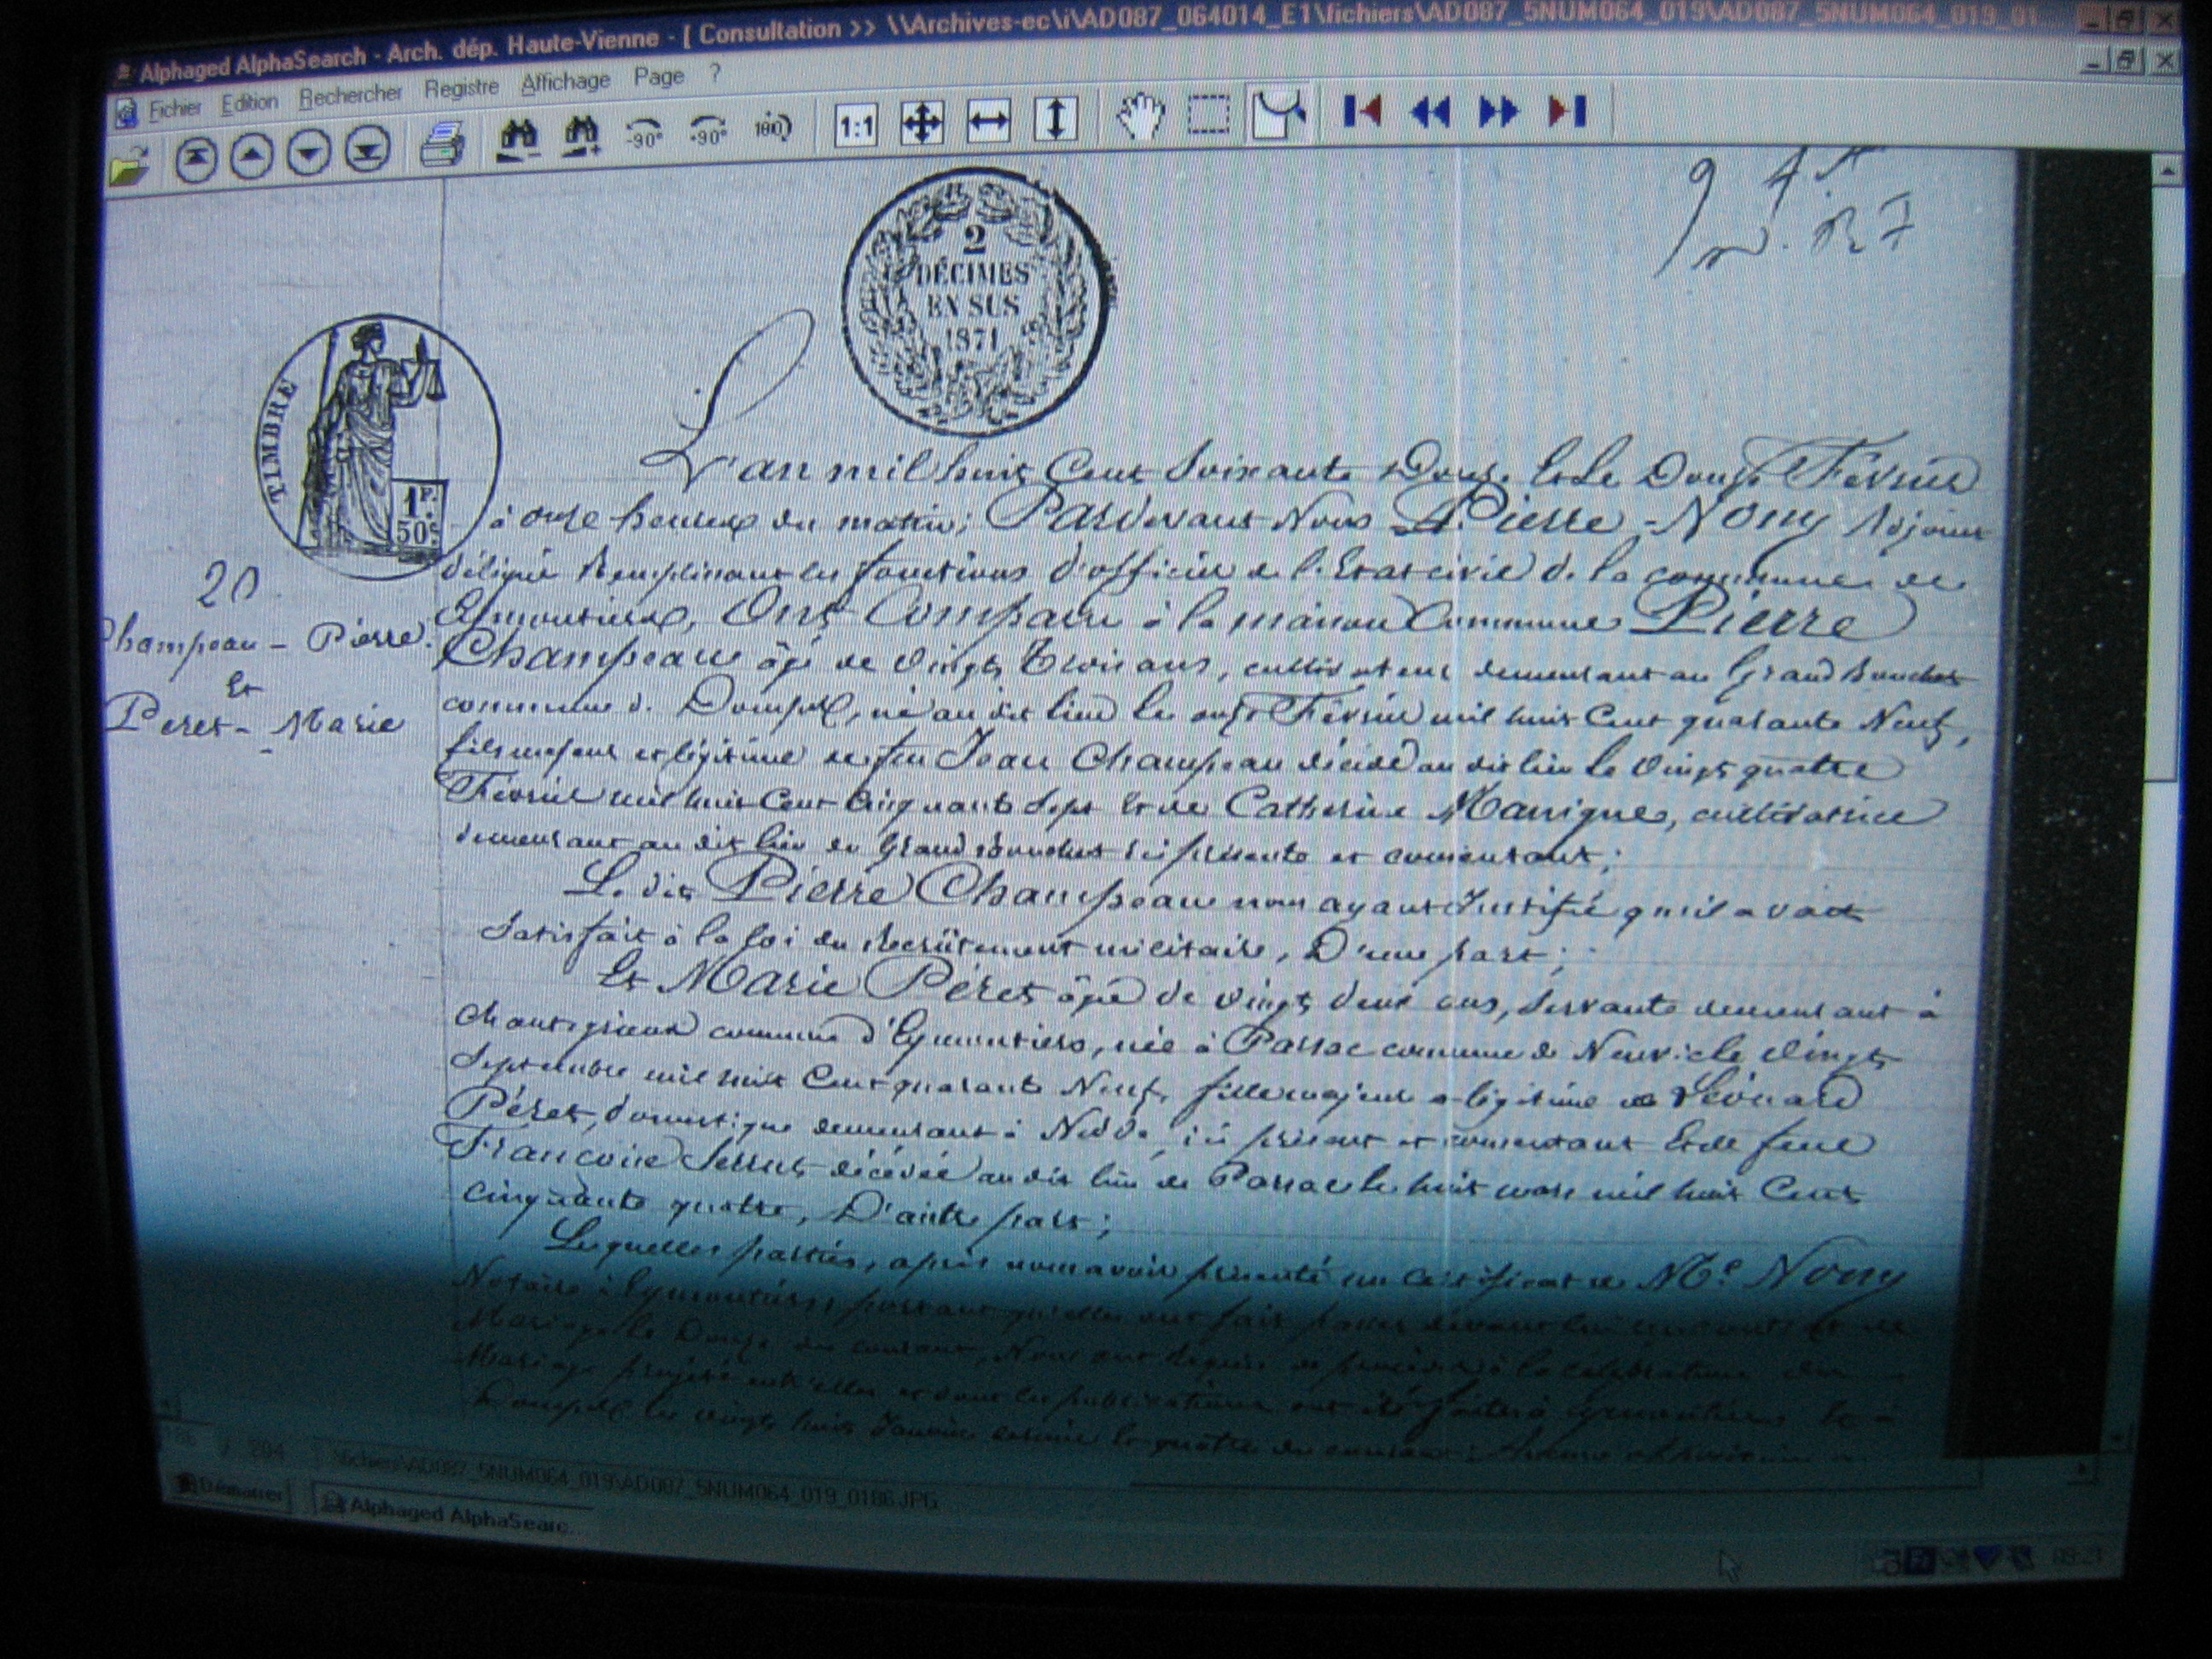 Alphaged AlphaSearch - Arch. dép. Haute-Vienne - [ Consultation >> \\Archives-ec\i\AD087_064014_E1\fichiers\AD087_5NUM064_019\AD087_5NUM064_019_01...
Fichier Edition Rechercher Registre Affichage Page ?
-90° +90° 180 1:1
2
DÉCIMES
EN SUS
1871
TIMBRE
1F.
50c.
L'an mil huit Cent Soixante Douze Et Le Douze Février
à onze heures du matin; Pardevant Nous Pierre Nony Adjoint
délégué Remplissant les fonctions d'officier de l'Etat civil de la commune de
Eymoutiers, Ont Comparu à la maison Commune Pierre
Champeau âgé de vingt Trois ans, cultivateur demeurant au Grand Bouchet
commune de Domps, né au dit lieu le onze Février mil huit Cent quarante Neuf,
fils majeur et légitime de feu Jean Champeau décédé au dit lieu le vingt quatre
Février mil huit Cent Cinquante Sept Et de Catherine Manigne, cultivatrice
demeurant au dit lieu de Grand Bouchet ici présente et consentant;
Le dit Pierre Champeau nous ayant Justifié qu'il avait
Satisfait à la loi du Recrutement militaire, D'une part;
Et Marie Péret âgée de vingt deux ans, Servante demeurant à
commune d'Eymoutiers, née à Passac commune de Neuvic le vingt
Septembre mil huit Cent quarante Neuf, fille majeure et légitime de Léonard
Péret, domestique demeurant à Nedde, ici présent et consentant Et de feue
Françoise décédée au dit lieu de Passac le huit mars mil huit Cent
Cinquante quatre, D'autre part;
Lesquelles parties, après nous avoir présenté un Certificat de Me Nony
Notaire à Eymoutiers, portant qu'elles ont fait passer devant lui leur de
Mariage le Douze du courant, Nous ont Requis de procéder à la célébration du
Mariage projeté entr'elles et dont les publications ont été faites à Eymoutiers et à
Domps les vingt huit Janvier dernier et quatre du courant;
20
Champeau - Pierre.
Et
Peret - Marie
284
\fichiers\AD087_5NUM064_019\AD087_5NUM064_019_0186.JPG
Démarrer
Alphaged AlphaSearc...
09:21